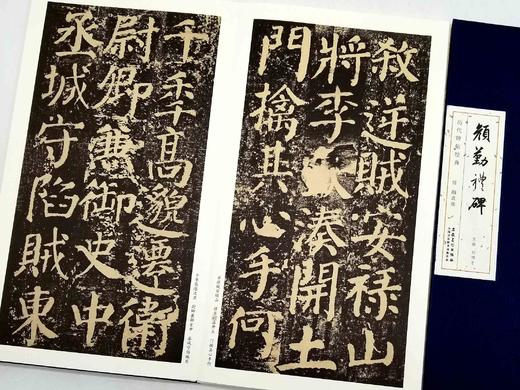 殺逆賊安祿山
將李湊開土
門擒其心手何
千秊高邈遷衛
尉卿兼御史中
丞城守陷賊東
顏勤禮碑
历代碑帖经典
唐 颜真卿